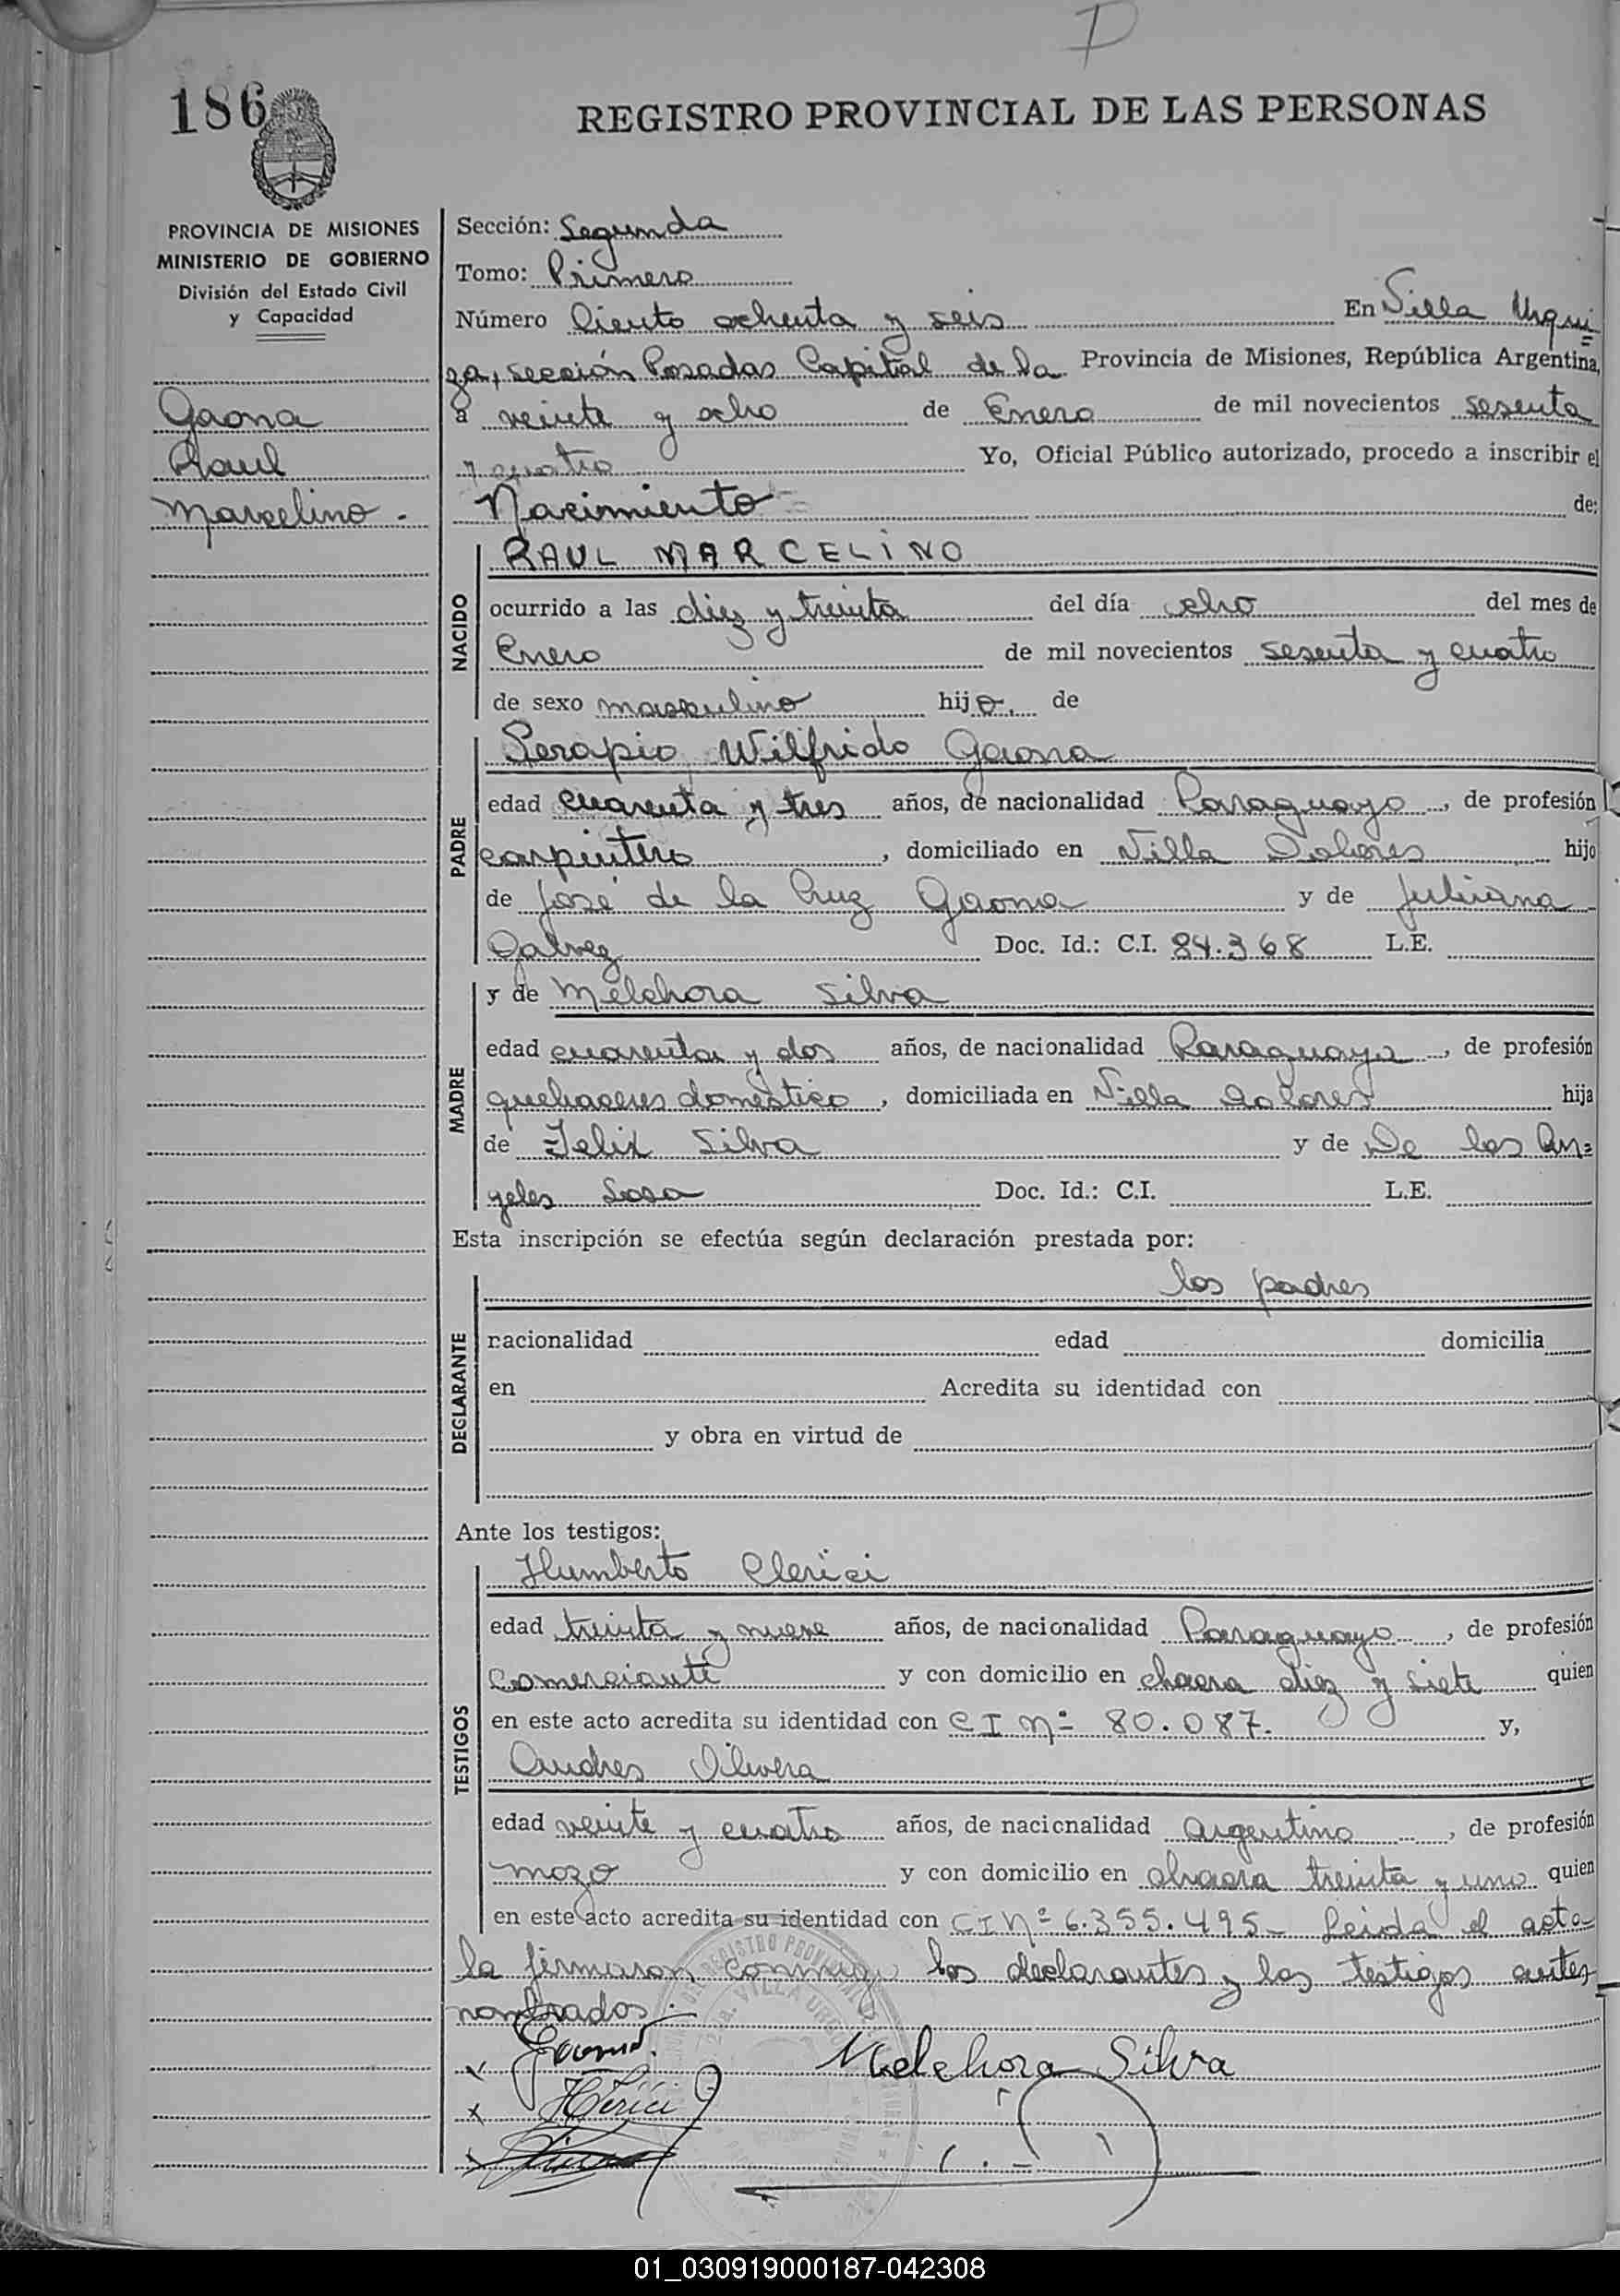 D
186
REGISTRO PROVINCIAL DE LAS PERSONAS
PROVINCIA DE MISIONES
MINISTERIO DE GOBIERNO
División del Estado Civil
y Capacidad
Gaona
Raul
Marcelino.
Sección: Segunda
Tomo: Primero
Número Ciento ochenta y seis En Villa Urqui=
za, sección Posadas Capital de la Provincia de Misiones, República Argentina,
a veinte y ocho de Enero de mil novecientos sesenta
y cuatro Yo, Oficial Público autorizado, procedo a inscribir el
Nacimiento = de:
NACIDO
RAUL MARCELINO
ocurrido a las diez y treinta del día ocho del mes de
Enero de mil novecientos sesenta y cuatro
de sexo masculino hijo. de
PADRE
Serapio Wilfrido Gaona
edad cuarenta y tres años, de nacionalidad Paraguayo, de profesión
carpintero, domiciliado en Villa Dolores hijo
de José de la Cruz Gaona y de Juliana
Galvez Doc. Id.: C.I. 84.368 L.E.
MADRE
y de Melchora Silva
edad cuarenta y dos años, de nacionalidad Paraguaya, de profesión
quehaceres doméstico, domiciliada en Villa Dolores hija
de Felix Silva y de De los An=
geles Sosa Doc. Id.: C.I. L.E.
Esta inscripción se efectúa según declaración prestada por:
DECLARANTE
los padres
nacionalidad edad domicilia
en Acredita su identidad con
y obra en virtud de
Ante los testigos:
TESTIGOS
Humberto Clerici
edad treinta y nueve años, de nacionalidad Paraguayo, de profesión
Comerciante y con domicilio en chacra diez y siete quien
en este acto acredita su identidad con C I Nº 80.087. y,
Andres Olivera
edad veinte y cuatro años, de nacionalidad Argentino, de profesión
mozo y con domicilio en chacra treinta y uno quien
en este acto acredita su identidad con C I Nº 6.355.495- Leida el acta
la firmaron conmigo los declarantes y los testigos antes
nombrados.
Gaona.
Melchora Silva
HClerici
REGISTRO PROVINCIAL
VILLA URQUIZA
01_030919000187-042308